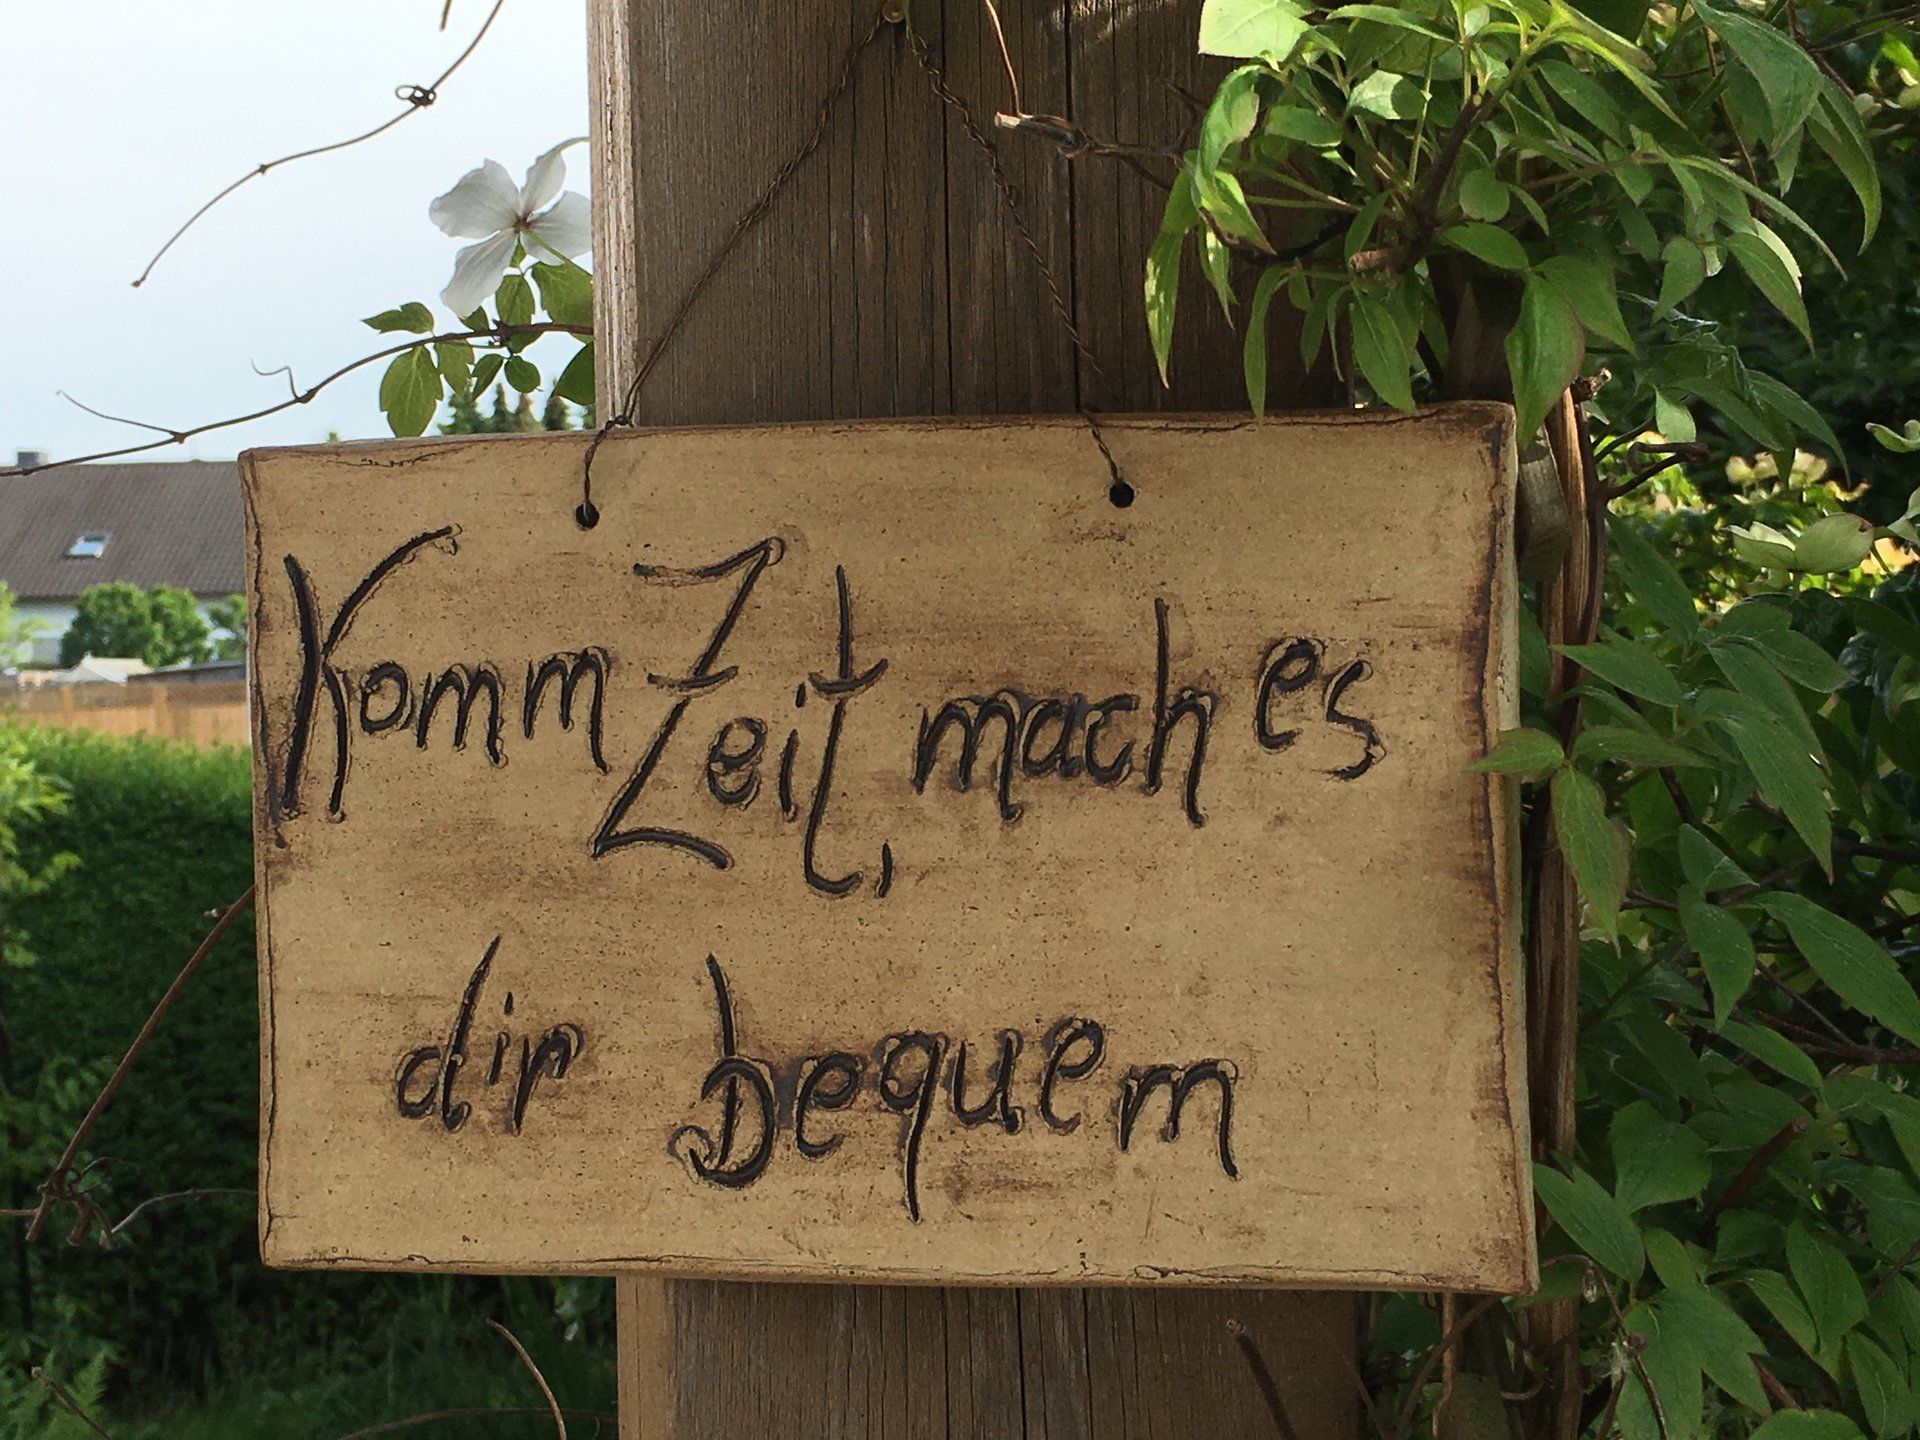 Komm Zeit, mach es
dir bequem